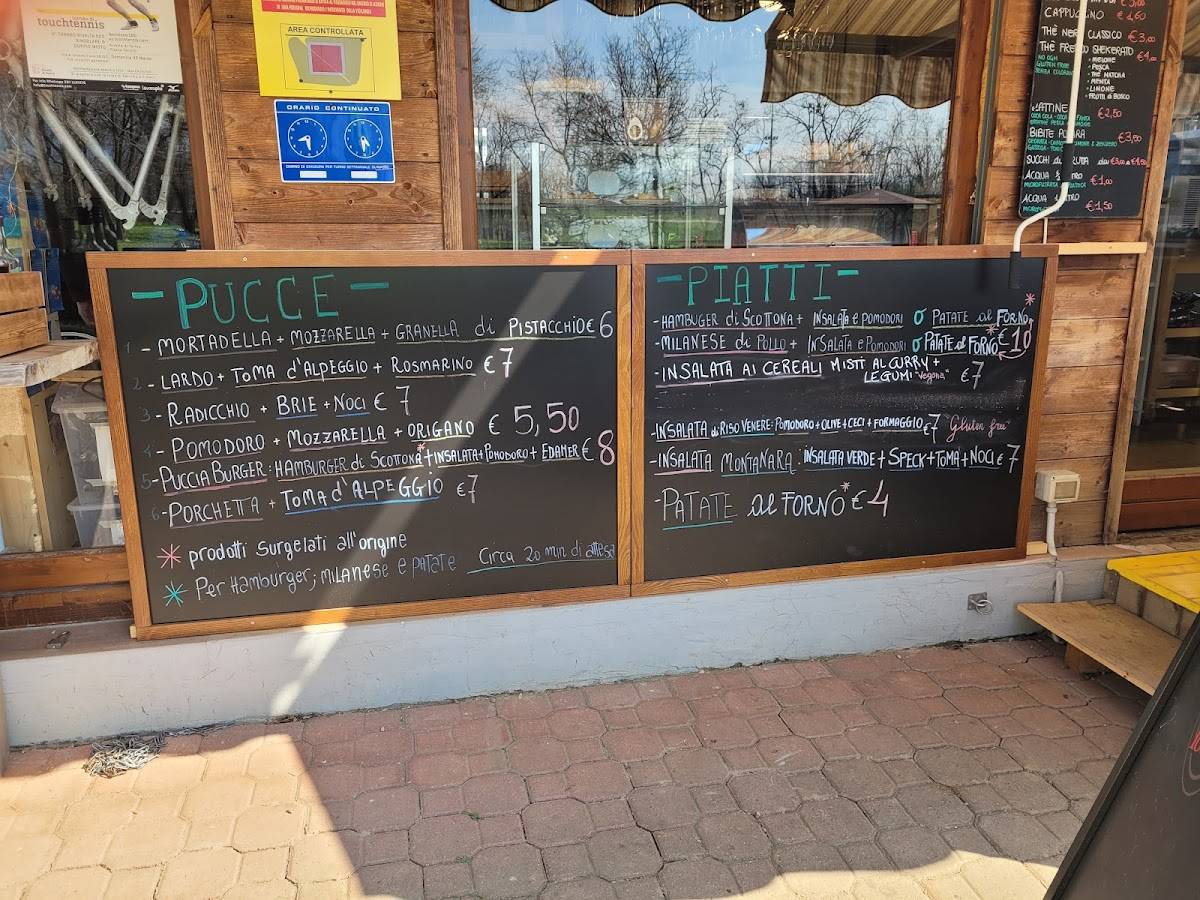 touchtennis
AREA CONTROLLATA
ORARIO CONTINUATO
CAPPUCCINO €1,60
THÈ NERO CLASSICO €3,00
THÈ FREDDO SHEKERATO €4,00
NO OGM
GLUTEN FREE
SENZA COLORANTI
- MELONE
- PESCA
- THÈ MATCHA
- MENTA
- LIMONE
- FRUTTI di BOSCO
LATTINE €2,50
BIBITE €3,50
SUCCHI di FRUTTA
ACQUA €1,00
ACQUA €1,50
- PUCCE -
1 - MORTADELLA + MOZZARELLA + GRANELLA di PISTACCHIO € 6
2 - LARDO + TOMA d'ALPEGGIO + ROSMARINO € 7
3 - RADICCHIO + BRIE + NOCI € 7
4 - POMODORO + MOZZARELLA + ORIGANO € 5,50
5 - PUCCIA BURGER: HAMBURGER di SCOTTONA* + INSALATA + POMODORO + EDAMER € 8
6 - PORCHETTA + TOMA d'ALPEGGIO € 7
* prodotti surgelati all'origine
* Per HAMBURGER, MILANESE e PATATE Circa 20 min di attesa
- PIATTI -
- HAMBUGER di SCOTTONA + INSALATA e POMODORI o PATATE al FORNO*
- MILANESE di POLLO + INSALATA e POMODORI o PATATE al FORNO* € 10
- INSALATA AI CEREALI MISTI AL CURRY +
LEGUMI "Vegana" € 7
- INSALATA di RISO VENERE: POMODORO + OLIVE + CECI + FORMAGGIO € 7 "Gluten free"
- INSALATA MONTANARA: INSALATA VERDE + SPECK + TOMA + NOCI € 7
- PATATE al FORNO* € 4